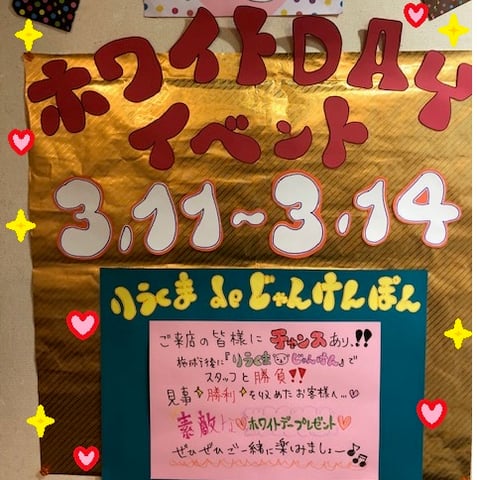 ホワイトDAY
イベント
3.11~3.14
りらくま deじゃんけんぽん
ご来店の皆様にチャンスあり、!!
施術後に『りらくまじゃんけん』で
スタッフと勝負!!
見事勝利を収めたお客様へ…♡
素敵な♡ホワイトデープレゼント♡
ぜひぜひご一緒に楽しみましょー♫